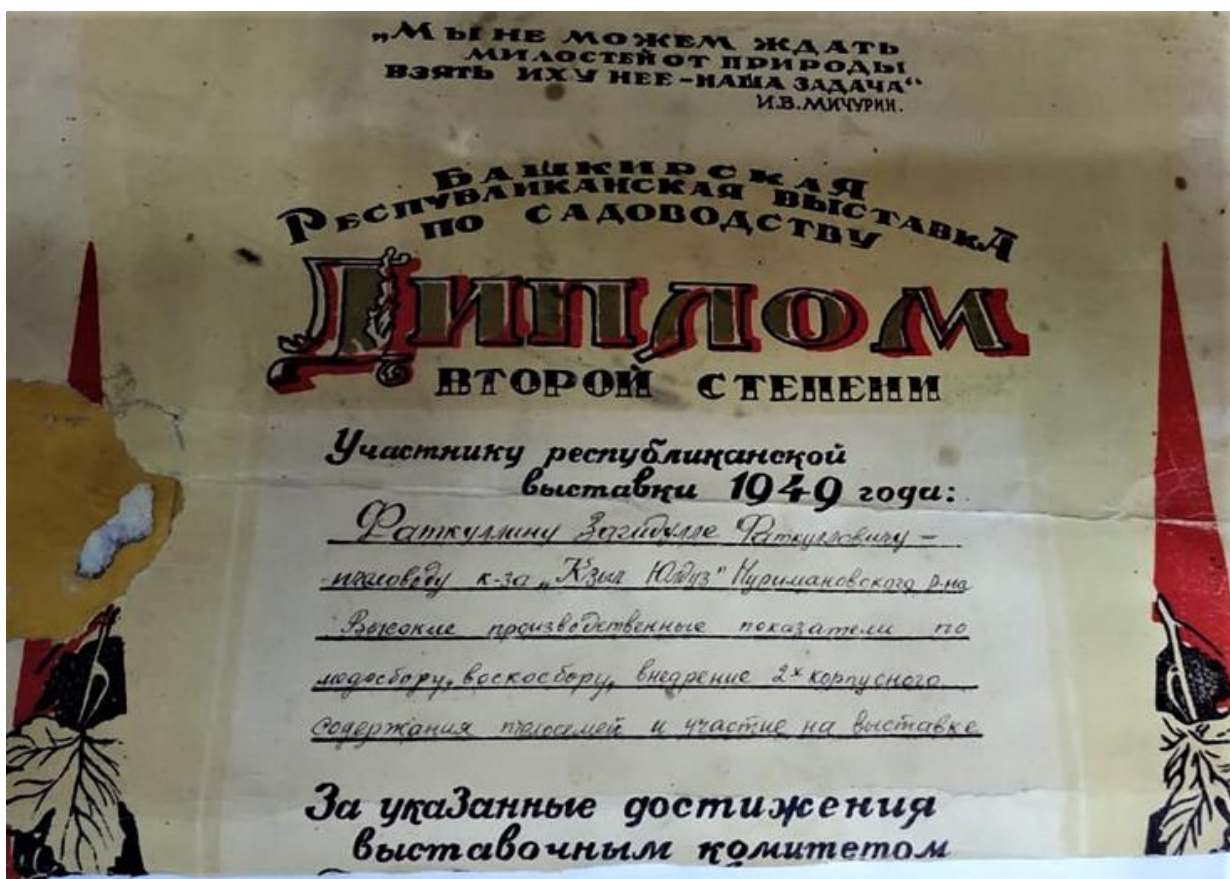 „МЫ НЕ МОЖЕМ ЖДАТЬ
МИЛОСТЕЙ ОТ ПРИРОДЫ
ВЗЯТЬ ИХ У НЕЕ – НАША ЗАДАЧА“
И.В. МИЧУРИН.
БАШКИРСКАЯ
РЕСПУБЛИКАНСКАЯ ВЫСТАВКА
ПО САДОВОДСТВУ
ДИПЛОМ
ВТОРОЙ СТЕПЕНИ
Участнику республиканской
выставки 1949 года:
Фаткуллину Загидулле Фаткулловичу –
пчеловоду к-за „Кзыл Юлдуз" Нуримановского р-на
Высокие производственные показатели по
медосбору, воскосбору, внедрение 2х корпусного
содержания пчелосемей и участие на выставке
За указанные достижения
выставочным комитетом